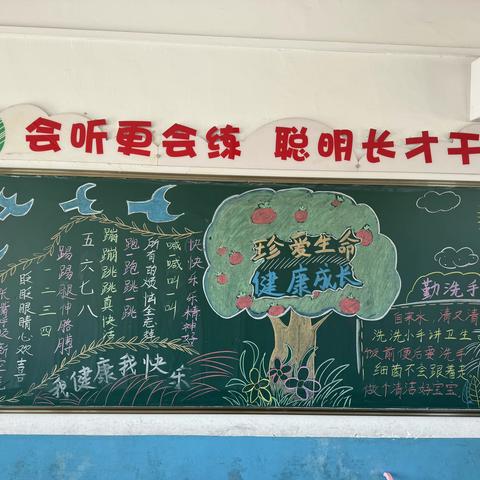 会听更会练 聪明长才干
快快乐乐精神好
喊一喊叫一叫
所有的烦恼全忘掉
跑一跑跳一跳
蹦蹦跳跳真快乐
五六七八
踢踢腿伸胳膊
一二三四
眨眨眼睛心欢喜
我健康我快乐
珍爱生命
健康成长
勤洗手
自来水,清又清
洗洗小手讲卫生
饭前便后要洗手
细菌不会跟着走
做个清洁好宝宝